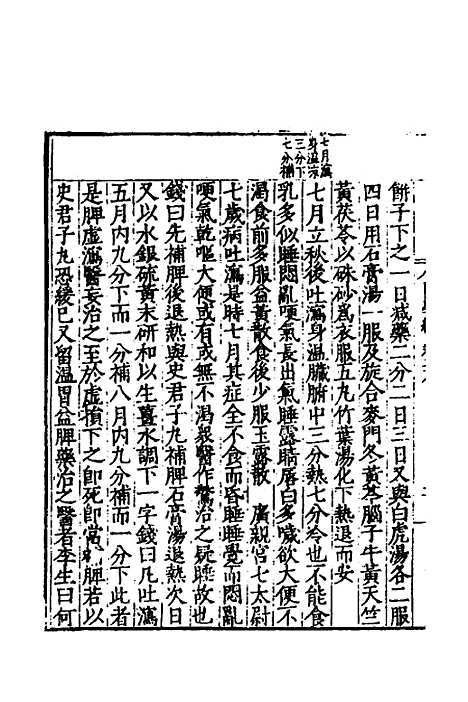 七月瀉
身溫涼
三分下
七分補
餅子下之一日减藥二分二日三日又與白虎湯各二服
四日用石膏湯一服及旋合麥門冬黄芩腦子牛黄天竺
黄茯苓以硃砂爲衣服五丸竹葉湯化下熱退而安
七月立秋後吐瀉身溫臟腑中三分熱七分冷也不能食
乳多似睡悶亂哽氣長出氣睡露睛唇白多噦欲大便不
渴食前多服益黄散食後少服玉露散　廣親宮七太尉
七歲病吐瀉是時七月其症全不食而昏睡睡覺而悶亂
哽氣乾嘔大便或有或無不渴衆醫作驚治之疑睡故也
錢曰先補脾後退熱與史君子丸補脾石膏湯退熱次日
又以水銀硫黄末研和以生薑水調下一字錢曰凡吐瀉
五月内九分下而一分補八月内九分補而一分下此者
是脾虛瀉醫妄治之至於虛損下之即死即當補脾若以
史君子丸恐緩已又留溫胃益脾藥治之醫者李生曰何